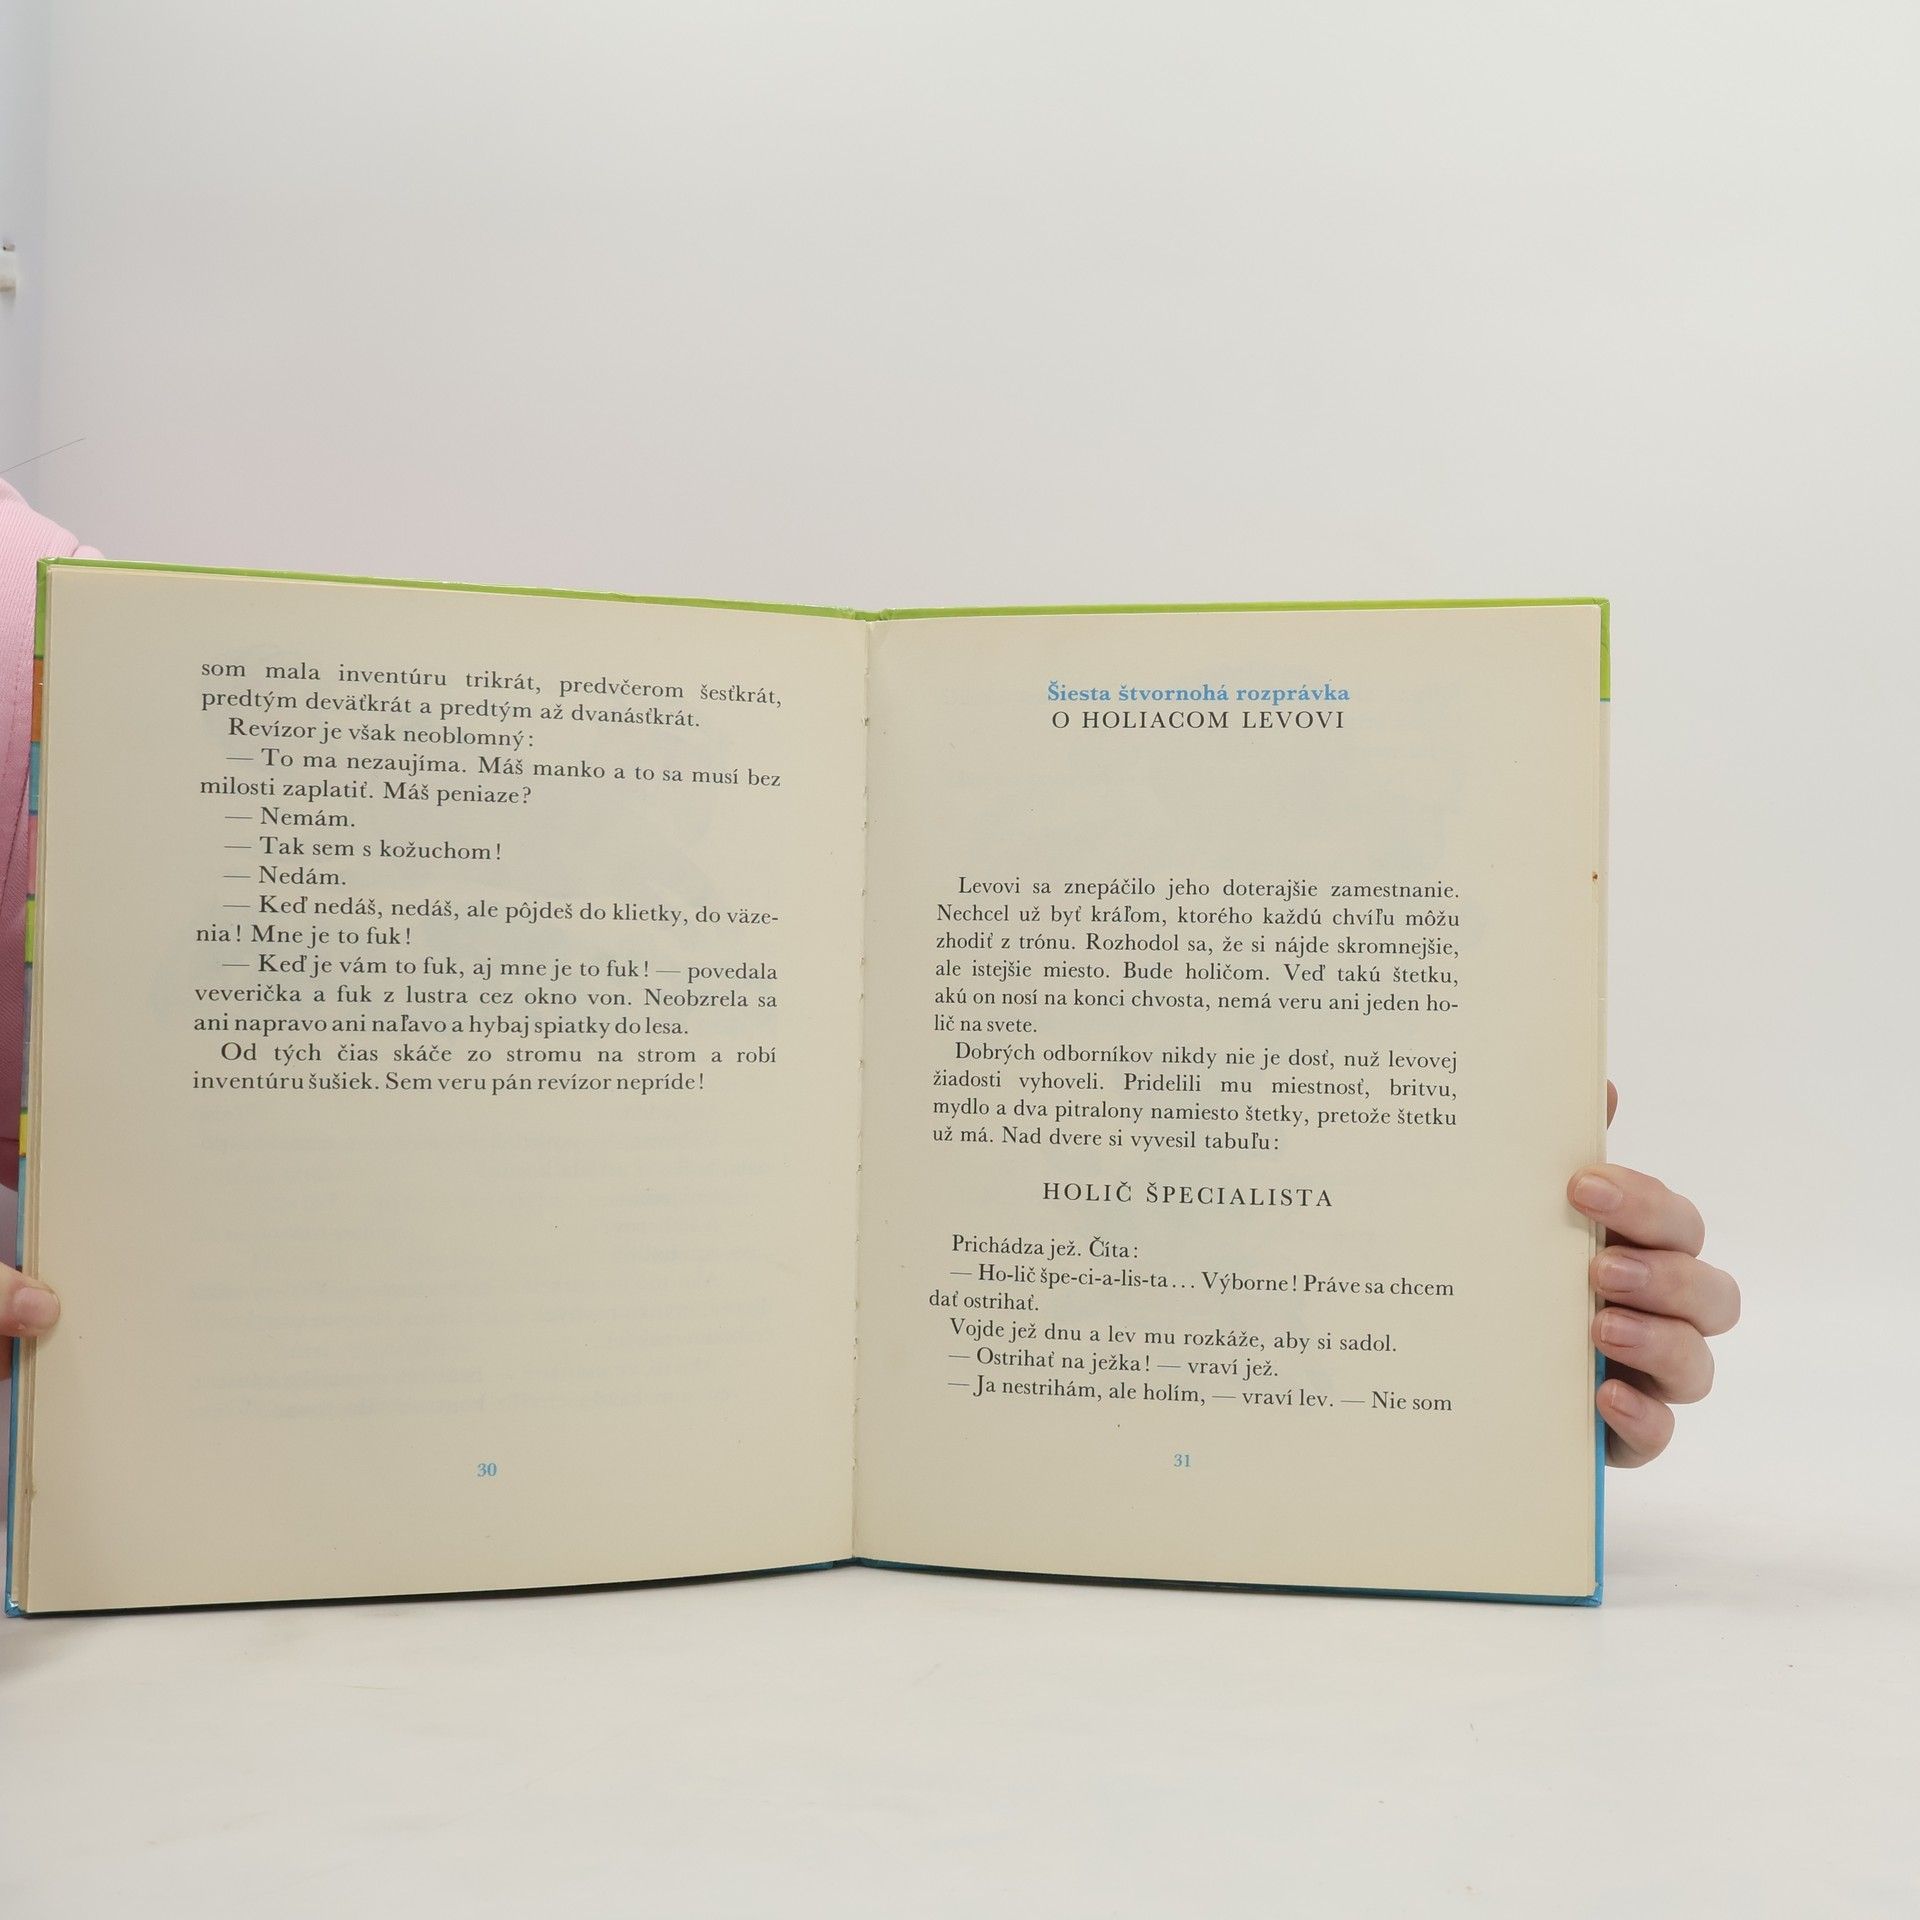 som mala inventúru trikrát, predvčerom šesťkrát,
predtým deväťkrát a predtým až dvanásťkrát.
Revízor je však neoblomný:
— To ma nezaujíma. Máš manko a to sa musí bez
milosti zaplatiť. Máš peniaze?
— Nemám.
— Tak sem s kožuchom!
— Nedám.
— Keď nedáš, nedáš, ale pôjdeš do klietky, do väze-
nia! Mne je to fuk!
— Keď je vám to fuk, aj mne je to fuk! — povedala
veverička a fuk z lustra cez okno von. Neobzrela sa
ani napravo ani naľavo a hybaj spiatky do lesa.
Od tých čias skáče zo stromu na strom a robí
inventúru šušiek. Sem veru pán revízor nepríde!
30
Šiesta štvornohá rozprávka
O HOLIACOM LEVOVI
Levovi sa znepáčilo jeho doterajšie zamestnanie.
Nechcel už byť kráľom, ktorého každú chvíľu môžu
zhodiť z trónu. Rozhodol sa, že si nájde skromnejšie,
ale istejšie miesto. Bude holičom. Veď takú štetku,
akú on nosí na konci chvosta, nemá veru ani jeden ho-
lič na svete.
Dobrých odborníkov nikdy nie je dosť, nuž levovej
žiadosti vyhoveli. Pridelili mu miestnosť, britvu,
mydlo a dva pitralony namiesto štetky, pretože štetku
už má. Nad dvere si vyvesil tabuľu:
HOLIČ ŠPECIALISTA
Prichádza jež. Číta:
— Ho-lič špe-ci-a-lis-ta... Výborne! Práve sa chcem
dať ostrihať.
Vojde jež dnu a lev mu rozkáže, aby si sadol.
— Ostrihať na ježka! — vraví jež.
— Ja nestrihám, ale holím, — vraví lev. — Nie som
31